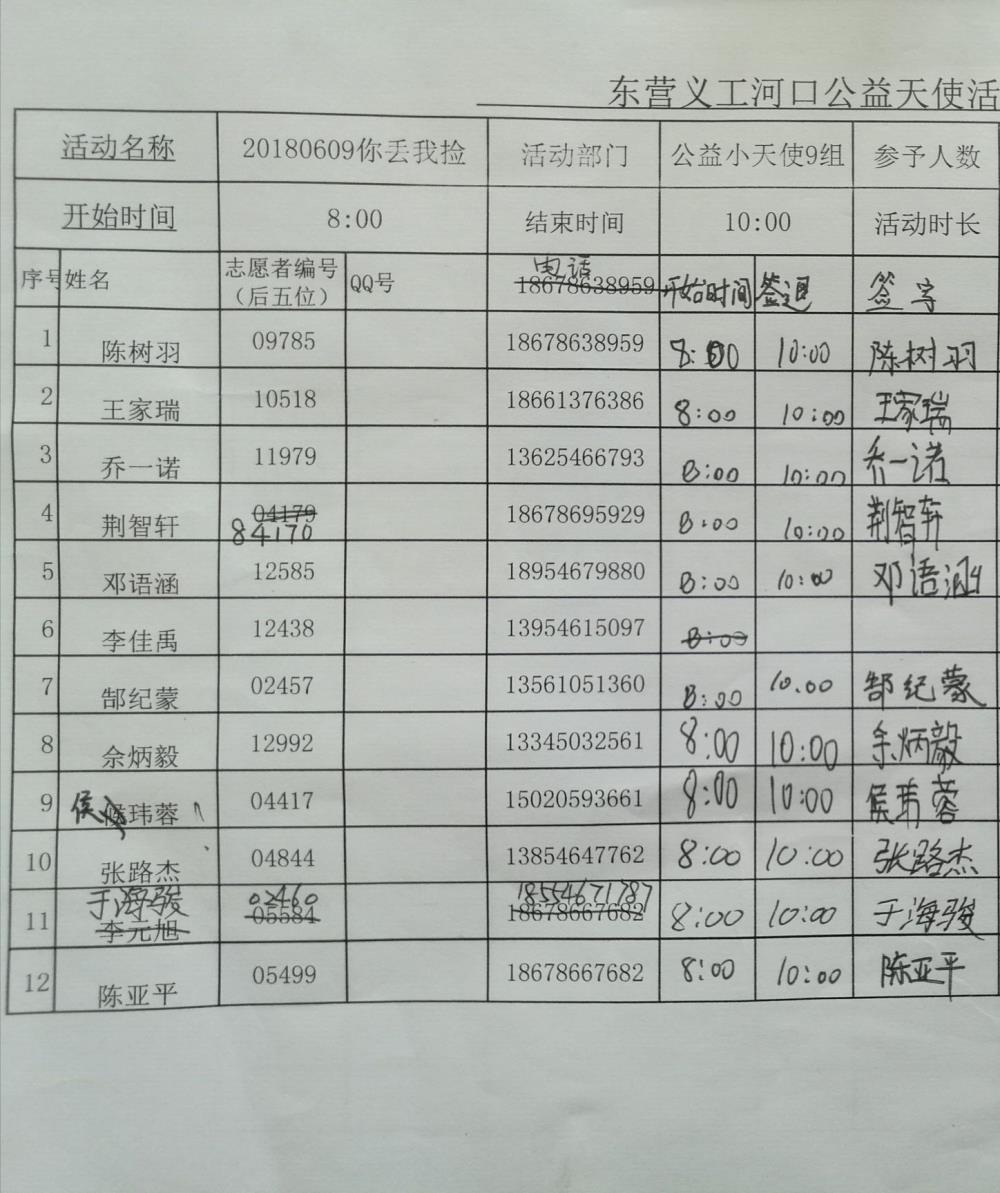 东营义工河口公益天使活
活动名称 20180609你丢我捡 活动部门 公益小天使9组 参予人数
开始时间 8:00 结束时间 10:00 活动时长
序号 姓名 志愿者编号（后五位） QQ号 电话 18678638959 开始时间 签退 签字
1 陈树羽 09785 18678638959 8:00 10:00 陈树羽
2 王家瑞 10518 18661376386 8:00 10:00 王家瑞
3 乔一诺 11979 13625466793 8:00 10:00 乔一诺
4 荆智轩 04179 84170 18678695929 8:00 10:00 荆智轩
5 邓语涵 12585 18954679880 8:00 10:00 邓语涵
6 李佳禹 12438 13954615097 8:00
7 郜纪蒙 02457 13561051360 8:00 10.00 郜纪蒙
8 佘炳毅 12992 13345032561 8:00 10:00 佘炳毅
9 侯玮蓉 04417 15020593661 8:00 10:00 侯玮蓉
10 张路杰 04844 13854647762 8:00 10:00 张路杰
11 于海骏 李元旭 02460 05584 18554671787 18678667682 8:00 10:00 于海骏
12 陈亚平 05499 18678667682 8:00 10:00 陈亚平